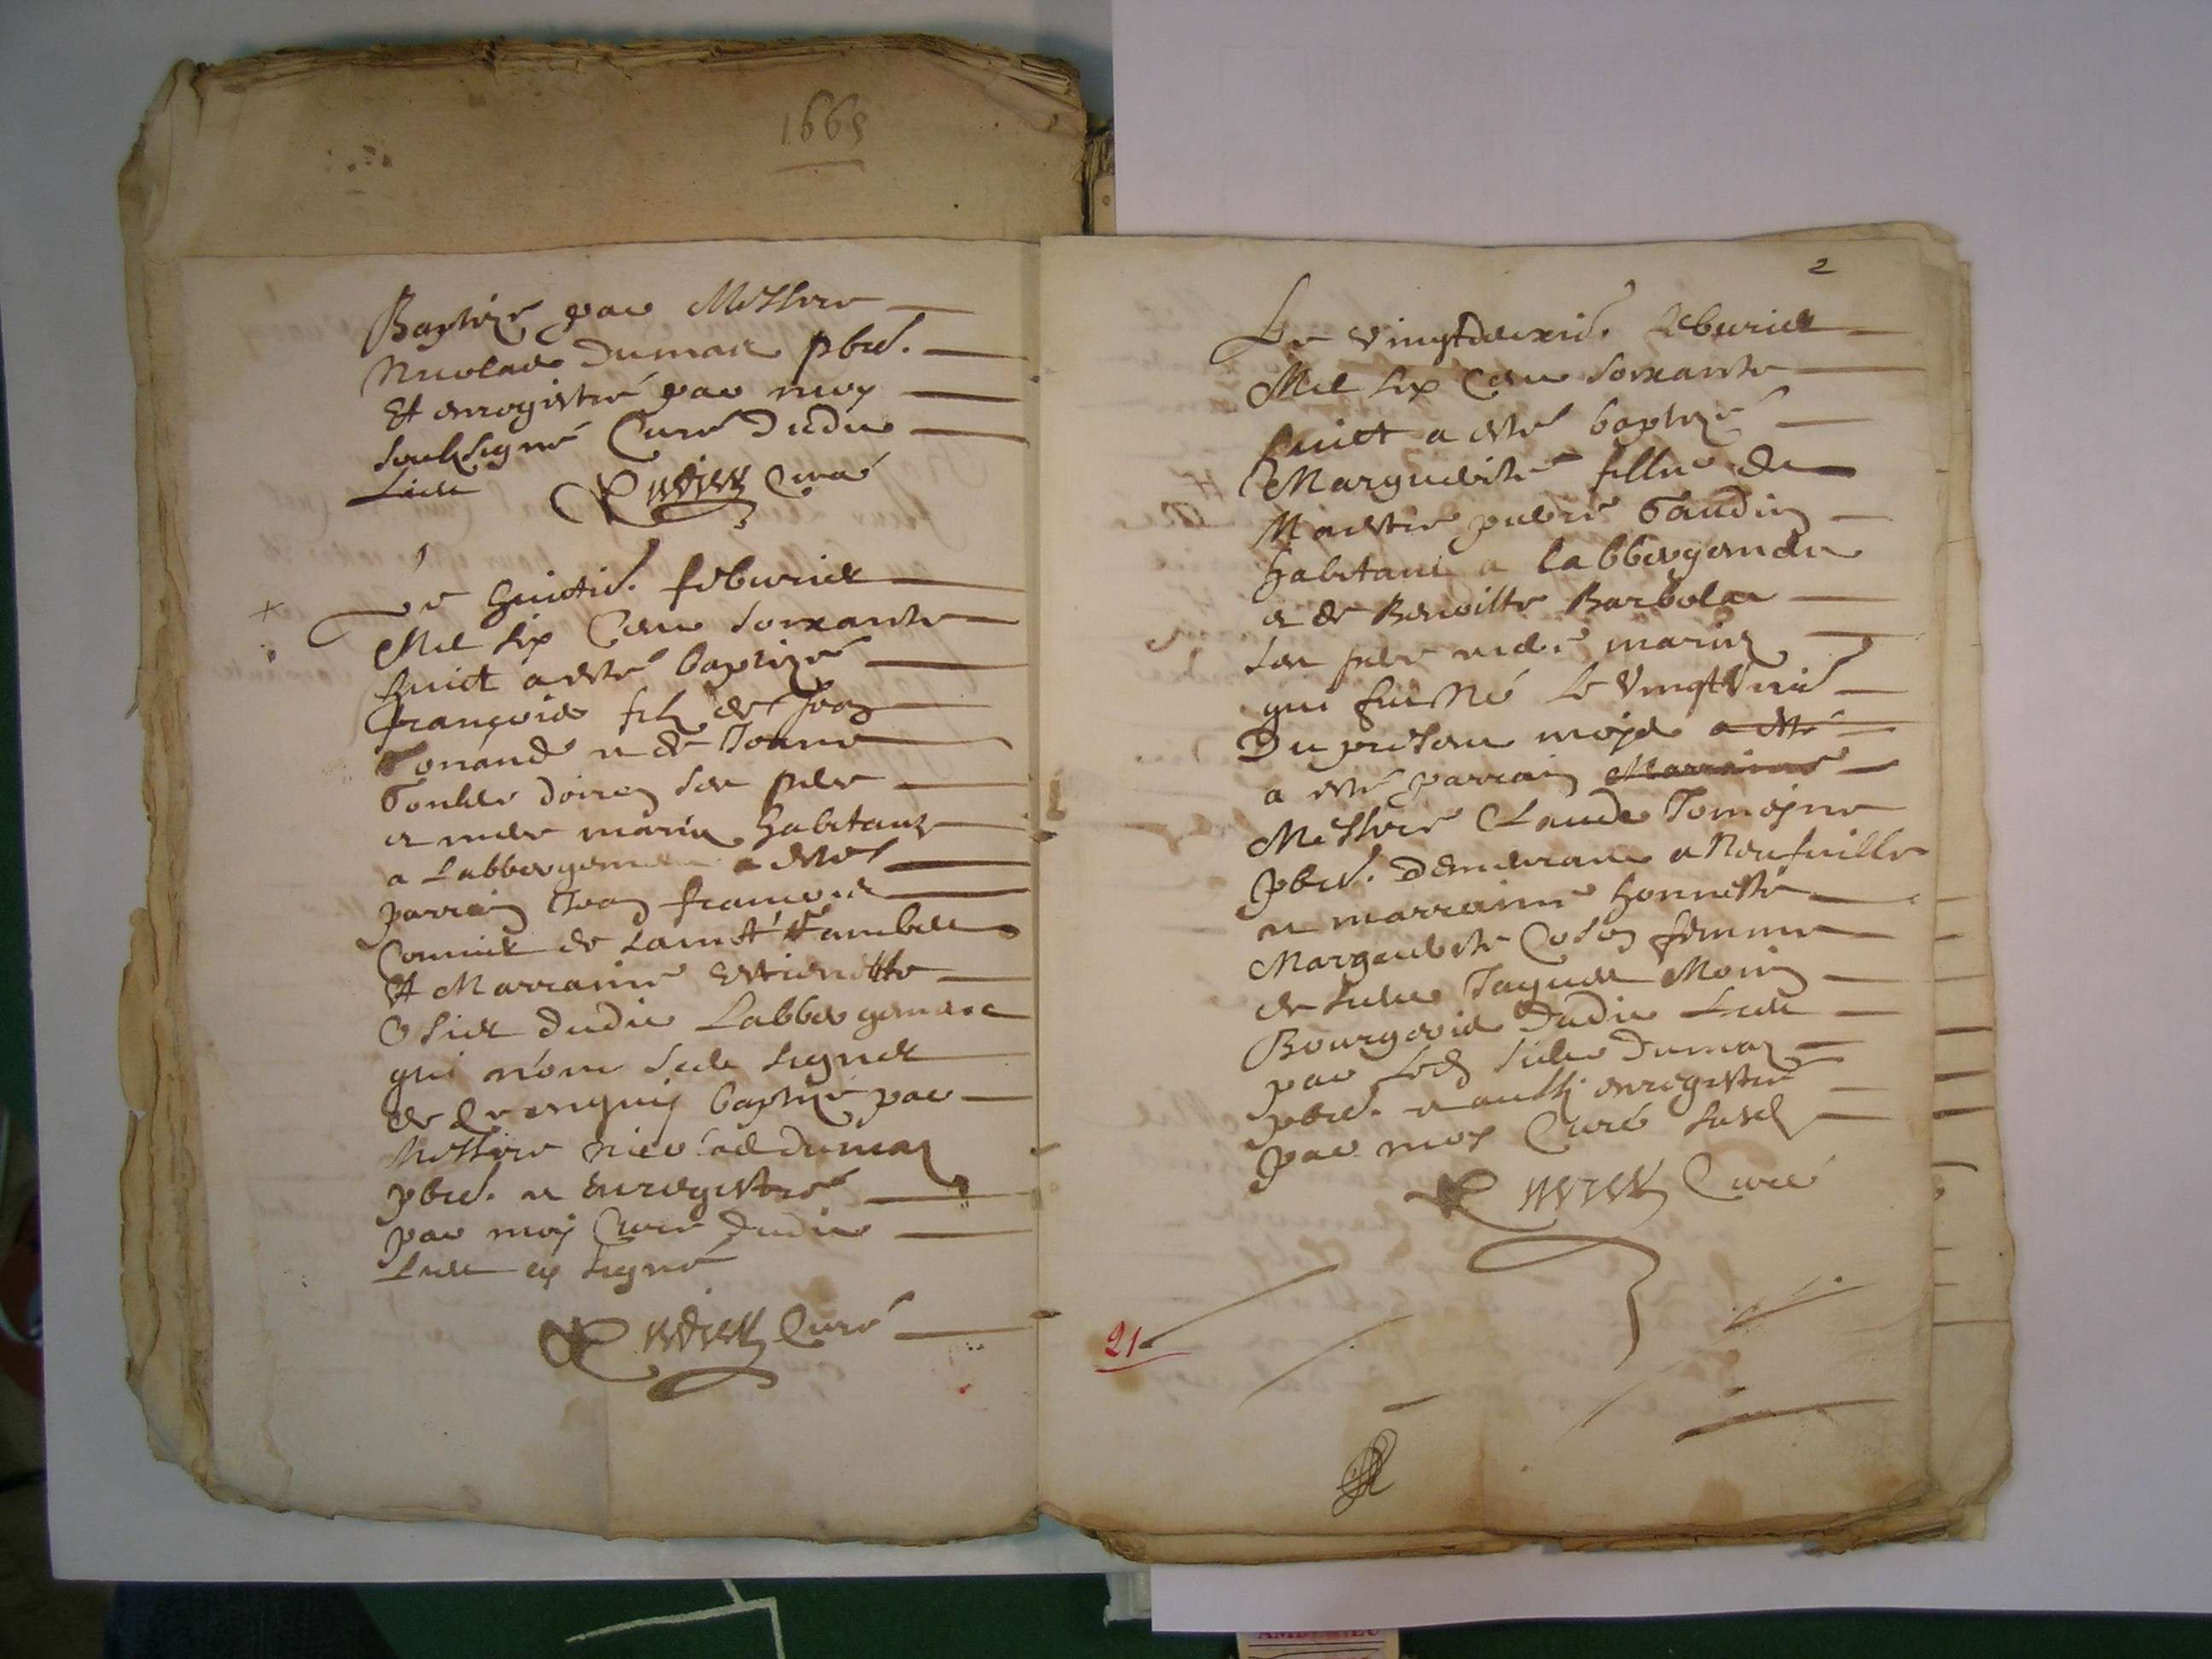 1668
Baptizé par Messire
Nicolas Dumas pbre.
Et enregistré par moy
soubsigné Curé dudit
Lieu Curé
Le huictie. febvrier
Mil six Cent soixante
huict a esté baptizé
françois filz de Jean
et de Jeanne
ses pere
et mere mariez habitans
a Labbergement a esté
parrain Jean françois
Cornier de Sainct
Et Marraine Estiennette
dudit Labbergement
qui n'ont sceu signer
de ce enquis baptizé par
Messire Nicolas dumas
pbre. et Enregistré
par moy Curé dudit
Lieu signé
Curé
2
Le Vingtdeuxie. febvrier
Mil six Cent soixante
huict a esté baptizé
Marguerite fille de
Maistre pierre Gaudin
habitant a labbergement
et de Benoitte
ses pere mere mariez
qui fut Né le Vingt Unie
Du present moys a esté
a esté parrain Marraine
Messire Claude
pbre. demeurant a Neufville
et marraine honneste
Marguerite femme
de sieur Jaques Morin
Bourgeois dudit Lieu
par led sieur Dumas
pbre. et aussy enregistré
par moy Curé susd
Curé
21